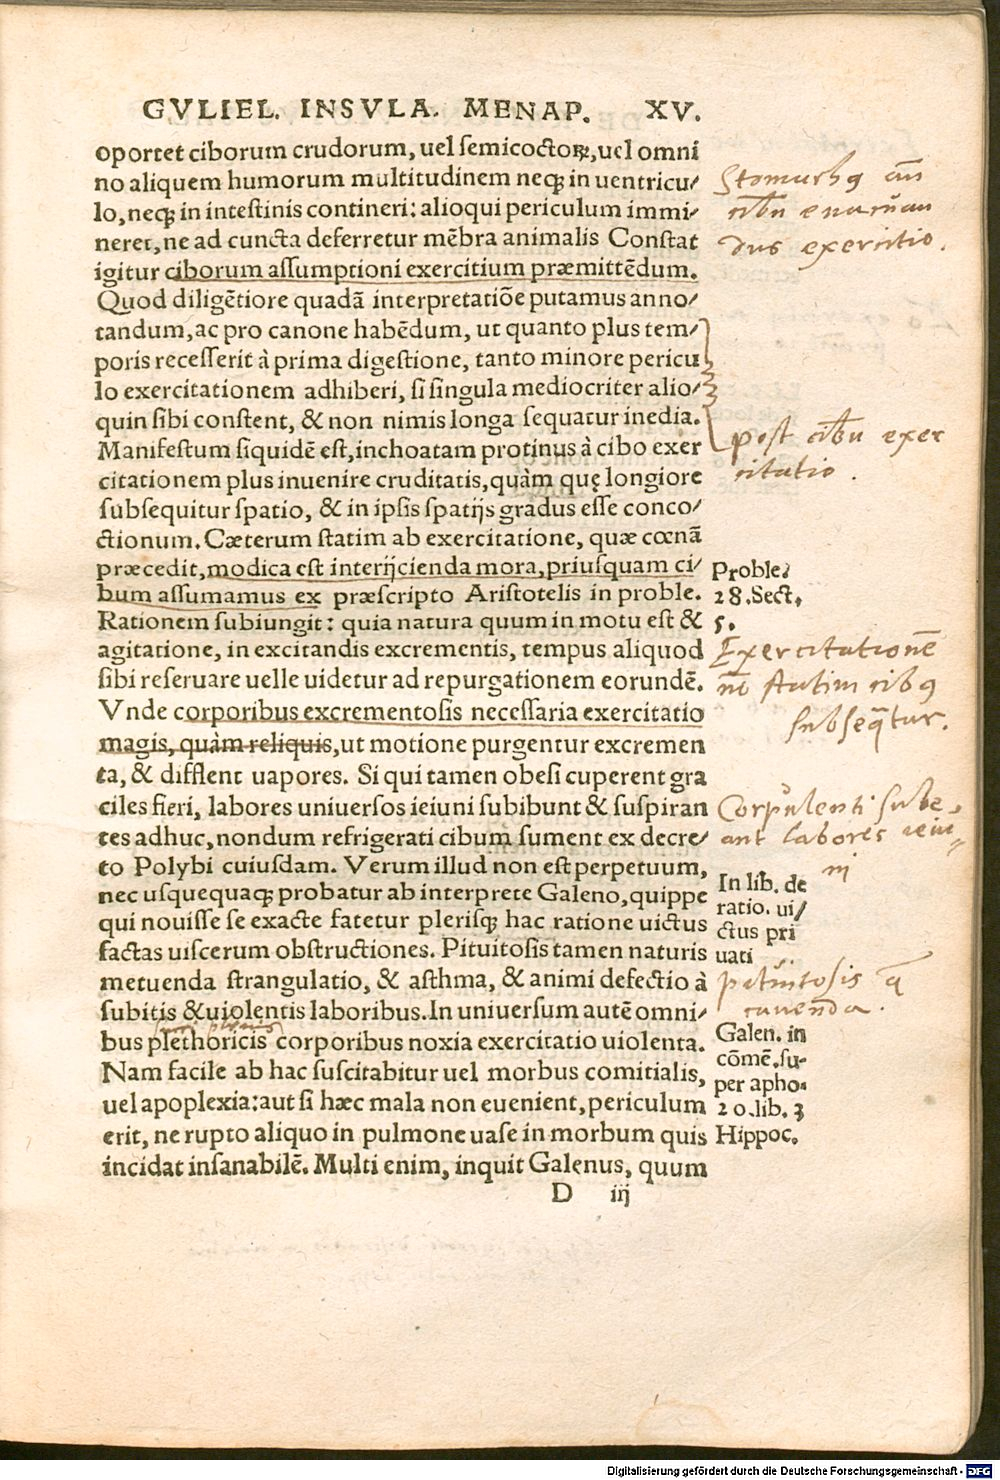 GVLIEL. INSVLA. MENAP. XV.
oportet ciborum crudorum, uel semicoctoꝝ, uel omni
no aliquem humorum multitudinem neqꝫ in uentricu/
lo, neqꝫ in intestinis contineri: alioqui periculum immi/
neret, ne ad cuncta deferretur mēbra animalis Constat
igitur ciborum assumptioni exercitium præmittēdum.
Quod diligētiore quadā interpretatiōe putamus anno/
tandum, ac pro canone habēdum, ut quanto plus tem/
poris recesserit à prima digestione, tanto minore pericu
lo exercitationem adhiberi, si singula mediocriter alio/
quin sibi constent, & non nimis longa sequatur inedia.
Manifestum siquidē est, inchoatam protinus à cibo exer
citationem plus inuenire cruditatis, quàm quę longiore
subsequitur spatio, & in ipsis spatijs gradus esse conco/
ctionum. Cæterum statim ab exercitatione, quæ cœnā
præcedit, modica est interijcienda mora, priusquam ci/
bum assumamus ex præscripto Aristotelis in proble.
Rationem subiungit: quia natura quum in motu est &
agitatione, in excitandis excrementis, tempus aliquod
sibi reseruare uelle uidetur ad repurgationem eorundē.
Vnde corporibus excrementosis necessaria exercitatio
magis, quàm reliquis, ut motione purgentur excremen
ta, & difflent uapores. Si qui tamen obesi cuperent gra
ciles fieri, labores uniuersos ieiuni subibunt & suspiran
tes adhuc, nondum refrigerati cibum sument ex decre/
to Polybi cuiusdam. Verum illud non est perpetuum,
nec usquequaqꝫ probatur ab interprete Galeno, quippe
qui nouisse se exacte fatetur plerisqꝫ hac ratione uictus
factas uiscerum obstructiones. Pituitosis tamen naturis
metuenda strangulatio, & asthma, & animi defectio à
subitis & uiolentis laboribus. In uniuersum autē omni/
plenis
bus plethoricis corporibus noxia exercitatio uiolenta.
Nam facile ab hac suscitabitur uel morbus comitialis,
uel apoplexia: aut si hæc mala non euenient, periculum
erit, ne rupto aliquo in pulmone uase in morbum quis
incidat insanabilē. Multi enim, inquit Galenus, quum
D iij
Stomachꝰ añ
cibū euacuan
dus exercitio.
post cibū exer
citatio.
Proble.
28. Sect.
5.
Exercitationē
nē statim cibꝰ
subseq̄tur.
Corpulenti sube-
ant labores ieiu=
nj
In lib. de
ratio. ui/
ctus pri
uati
pituitosis q̄
cauenda.
Galen. in
cōmē. su-
per apho.
20. lib. 3
Hippoc.
Digitalisierung gefördert durch die Deutsche Forschungsgemeinschaft - DFG